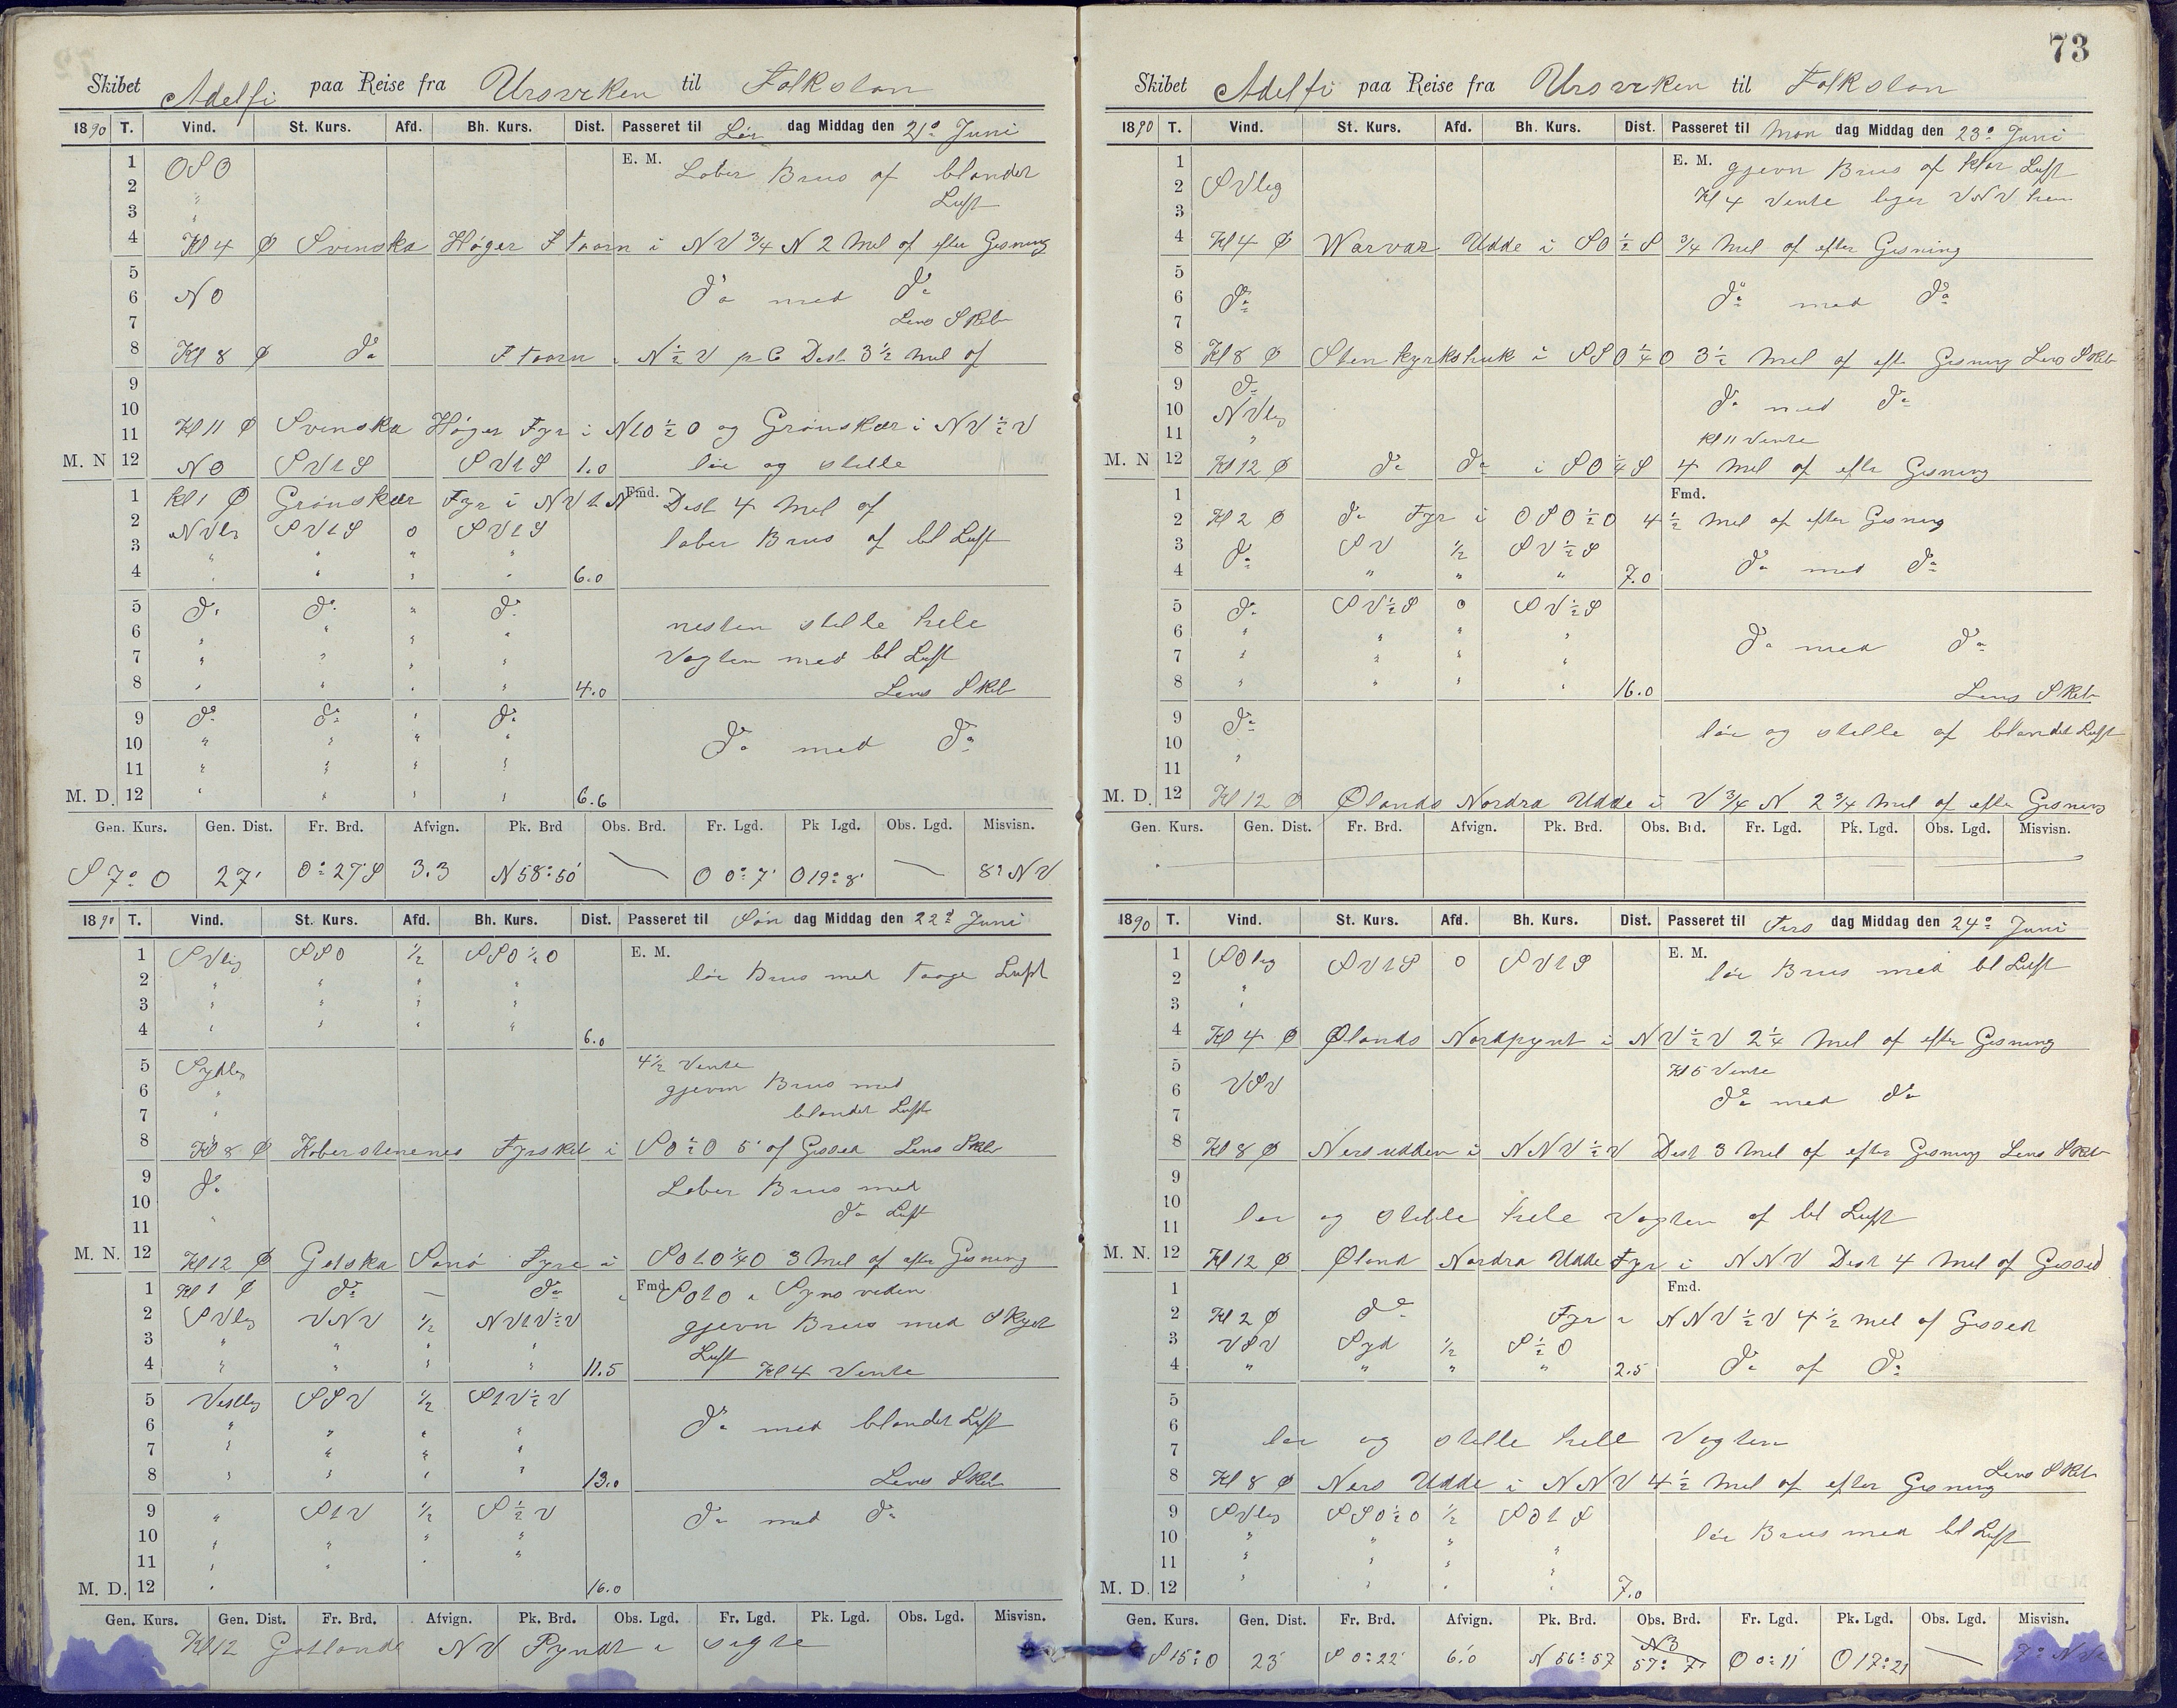 73
Skibet Adelfi paa Reise fra Ursviken til Folkston
1890 T. Vind. St. Kurs. Afd. Bh. Kurs. Dist. Passeret til Lör dag Middag den 21a Juni
1 OSO E. M. Laber Brus af blandet
2 " Luft
3 "
4 Kl 4 Ø Svenska Høger F taarn i NV 3/4 N 2 Mil af efter Gisning
5
6 NO Do med Do
7 Lens Skib
8 Kl 8 Ø Do F taarn i N 1/2 V pr C Dist 3 1/2 Mil af
9
10
11 Kl 11 Ø Svenska Høger Fyr i N t O 1/2 O og Grønskær i NV 1/2 V
M. N 12 NO SVtS SVtS 1.0 löi og stille
1 Kl 1 Ø Grønskær Fyr i NVtN Fmd. Dist 4 Mil af
2 NVlig SVtS 0 SVtS
3 " " " " laber Brus af bl Luft
4 " " " " 6.0
5 Do Do " Do
6 " " " " nesten stille hele
7 " " " " Vagten med bl Luft
8 " " " " 4.0 Lens Skib
9 Do Do " Do
10 " " " " Do med Do
11 " " " "
M. D. 12 " " " " 6.6
Gen. Kurs. Gen. Dist. Fr. Brd. Afvign. Pk. Brd Obs. Brd. Fr. Lgd. Pk Lgd. Obs. Lgd. Misvisn.
S 7° O 27' 0° 27' S 3.3 N 58° 50' — O 0° 7' O 19° 8' — 8° NV
1890 T. Vind. St. Kurs. Afd. Bh. Kurs. Dist. Passeret til Søn dag Middag den 22d Juni
1 SVlig SSO 1/2 SSO 1/2 O E. M.
2 " " " " löi Brus med Taage Luft
3 " " " "
4 " " " " 6.0
5 Sydlig 4 1/2 Vente
6 " gjevn Brus med
7 " blandet Luft
8 Kl 8 Ø Koberstenenes Fyrskib i SO 1/2 O 5' af Gisset Lens Skib
9 Do Laber Brus med
10 Do Luft
11 "
M. N. 12 Kl 12 Ø Gotska Sanö Fyre i SOtO 1/4 O 3 Mil af efter Gisning
1 Kl 1 Ø Do — Do Fmd. i SOtO i Synsviden
2 SVlig VNV 1/2 NVtV 1/2 V gjevn Brus med Skyet
3 " " " " Luft
4 " " " " 11.5 Kl 4 Vente
5 Vestlig SSV 1/2 StV 1/2 V
6 " " " " Do med blandet Luft
7 " " " "
8 " " " " 13.0 Lens Skib
9 " StV 1/2 S 1/2 V Do med Do
10 " " " "
11 " " " "
M. D. 12 " 16.0
Gen. Kurs. Gen. Dist. Fr. Brd. Afvign. Pk. Brd. Obs. Lgd. Fr. Lgd. Pk. Lgd. Obs. Lgd. Misvisn.
Kl 12 Gotlands NV Pyndt i sigte
Skibet Adelfi paa Reise fra Ursviken til Folkston
1890 T. Vind. St. Kurs. Afd. Bh. Kurs. Dist. Passeret til Man dag Middag den 23a Juni
1 E. M. gjevn Brus af klar Luft
2 SVlig Kl 4 Vente
3
4 Kl 4 Ø Udde i SO 1/2 S 3/4 Mil af efter Gisning
5
6 Do Do med Do
7
8 Kl 8 Ø Stenkyrkshuk i SSO 1/4 O 3 1/2 Mil af eft Gisning Lens Skib
9 Do
10 NVlig Do med Do
11 " Kl 11 Vente
M. N 12 Kl 12 Ø Do Do i SO 1/4 S 4 Mil af efter Gisning
1 Fmd.
2 Kl 2 Ø Do Fyr i OSO 1/2 O 4 1/2 Mil af efter Gisning
3 Do SV 1/2 SV 1/2 S
4 " " " 7.0 Do med Do
5 Do SV 1/2 S 0 SV 1/2 S
6 " " " "
7 " " " " Do med Do
8 " " " " 16.0 Lens Skib
9 Do löi og stille af blandet Luft
10
11 "
M. D. 12 Kl 12 Ø Ølands Nordra Udde i V 3/4 N 2 3/4 Mil af efter Gisning
Gen. Kurs. Gen. Dist. Fr. Brd. Afvign. Pk. Brd. Obs. Brd. Fr. Lgd. Pk. Lgd. Obs. Lgd. Misvisn.
1890 T. Vind. St. Kurs. Afd. Bh. Kurs. Dist. Passeret til Tirs dag Middag den 24a Juni
1 SOlig SVtS 0 SVtS E. M.
2 " löi Brus med bl Luft
3 "
4 Kl 4 Ø Ølands Nordpynt i NV 1/2 V 2 1/4 Mil af efter Gisning
5 Kl 5 Vente
6 VSV Do med Do
7
8 Kl 8 Ø Nersudden i NNV 1/2 V Dist 3 Mil af efter Gisning Lens Skib
9
10
11 löi og stille hele Vagten af bl Luft
M. N. 12 Kl 12 Ø Øland Nordra Udde Fyr i NNV Dist 4 Mil af Gisset
1 Fmd.
2 Kl 2 Ø Do Fyr i NNV 1/2 V 4 1/2 Mil af Gisset
3 VSV Syd 1/2 S 1/2 O
4 " " " " 2.5 Do af Do
5
6
7 löi og stille hele Vagten
8 Kl 8 Ø Ners Udde i NNV 4 1/2 Mil af efter Gisning Lens Skib
9 SVlig SSO 1/2 O 1/2 SOtS
10 " " " " löi Brus med bl Luft
11 " " " "
M. D. 12 " " " " 7.0
Gen. Kurs. Gen. Dist. Fr. Brd. Afvign. Pk. Brd. Obs. Brd. Fr. Lgd. Pk. Lgd. Obs. Lgd. Misvisn.
S 15° O 23' S 0° 22' 6.0 N 56° 57 57° 7' O 0° 11' O 17° 21 — 7° NV